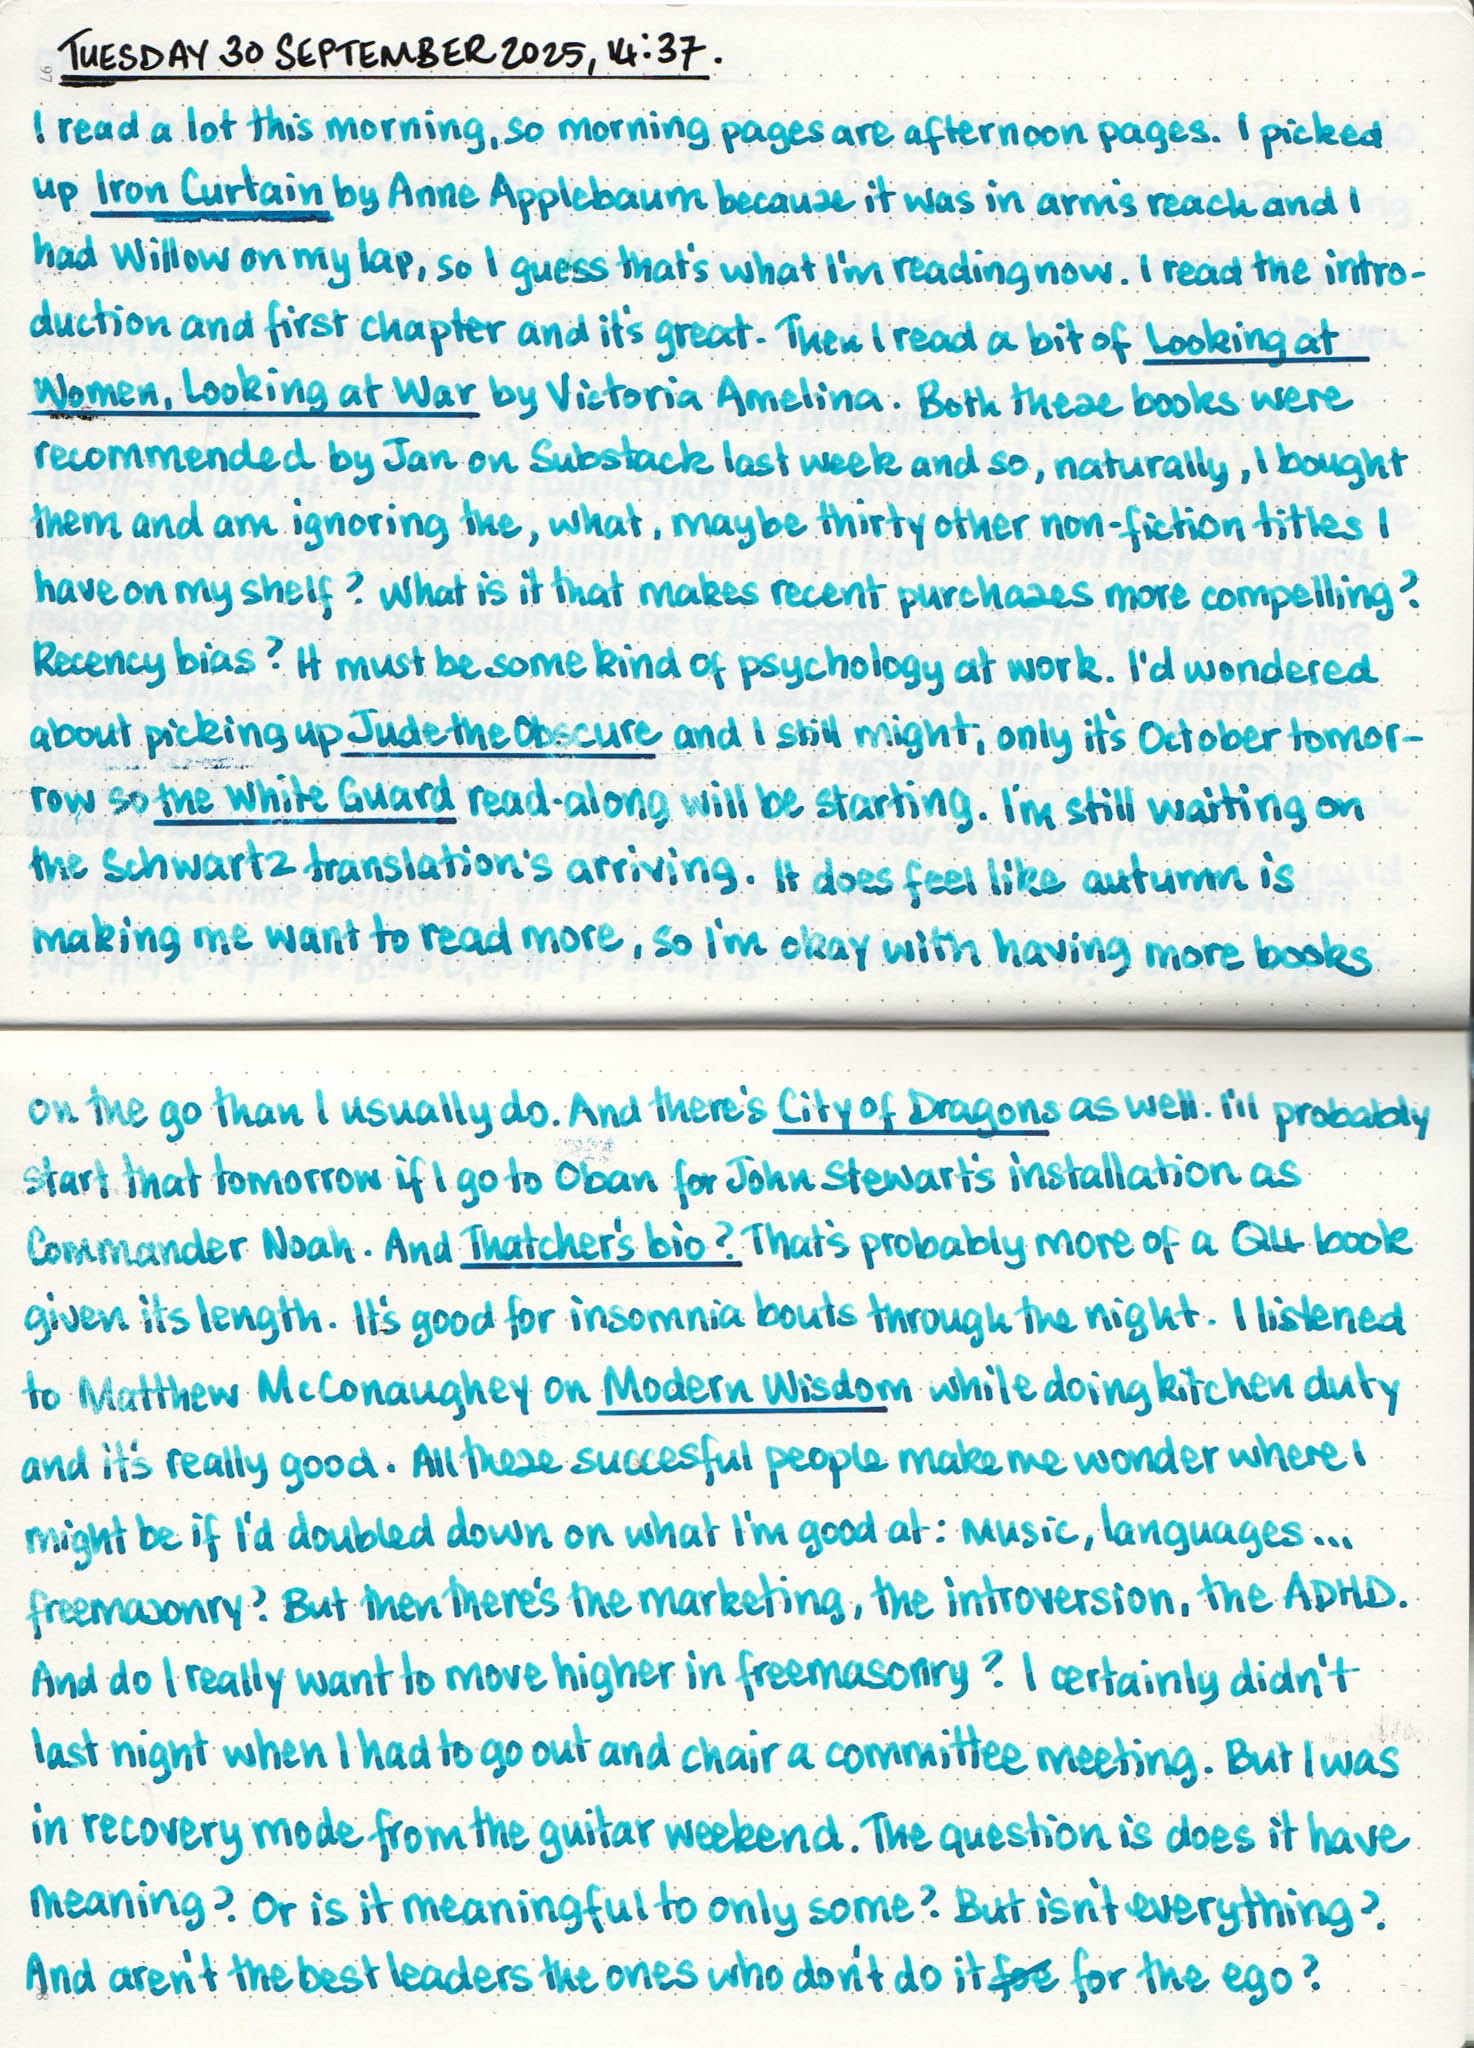 TUESDAY 30 SEPTEMBER 2025, 14:37.
97
I read a lot this morning, so morning pages are afternoon pages. I picked
up Iron Curtain by Anne Applebaum because it was in arm's reach and I
had Willow on my lap, so I guess that's what I'm reading now. I read the intro-
duction and first chapter and it's great. Then I read a bit of Looking at
Women, Looking at War by Victoria Amelina. Both these books were
recommended by Jan on Substack last week and so, naturally, I bought
them and am ignoring the, what, maybe thirty other non-fiction titles I
have on my shelf? What is it that makes recent purchases more compelling?
Recency bias? It must be some kind of psychology at work. I'd wondered
about picking up Jude the Obscure and I still might; only it's October tomor-
row so the White Guard read-along will be starting. I'm still waiting on
the Schwartz translation's arriving. It does feel like autumn is
making me want to read more, so I'm okay with having more books
on the go than I usually do. And there's City of Dragons as well. I'll probably
start that tomorrow if I go to Oban for John Stewart's installation as
Commander Noah. And Thatcher's bio? That's probably more of a Q4 book
given its length. It's good for insomnia bouts through the night. I listened
to Matthew McConaughey on Modern Wisdom while doing kitchen duty
and it's really good. All these succesful people make me wonder where I
might be if I'd doubled down on what I'm good at: music, languages...
freemasonry? But then there's the marketing, the introversion, the ADHD.
And do I really want to move higher in freemasonry? I certainly didn't
last night when I had to go out and chair a committee meeting. But I was
in recovery mode from the guitar weekend. The question is does it have
meaning? Or is it meaningful to only some? But isn't everything?
And aren't the best leaders the ones who don't do it foe for the ego?